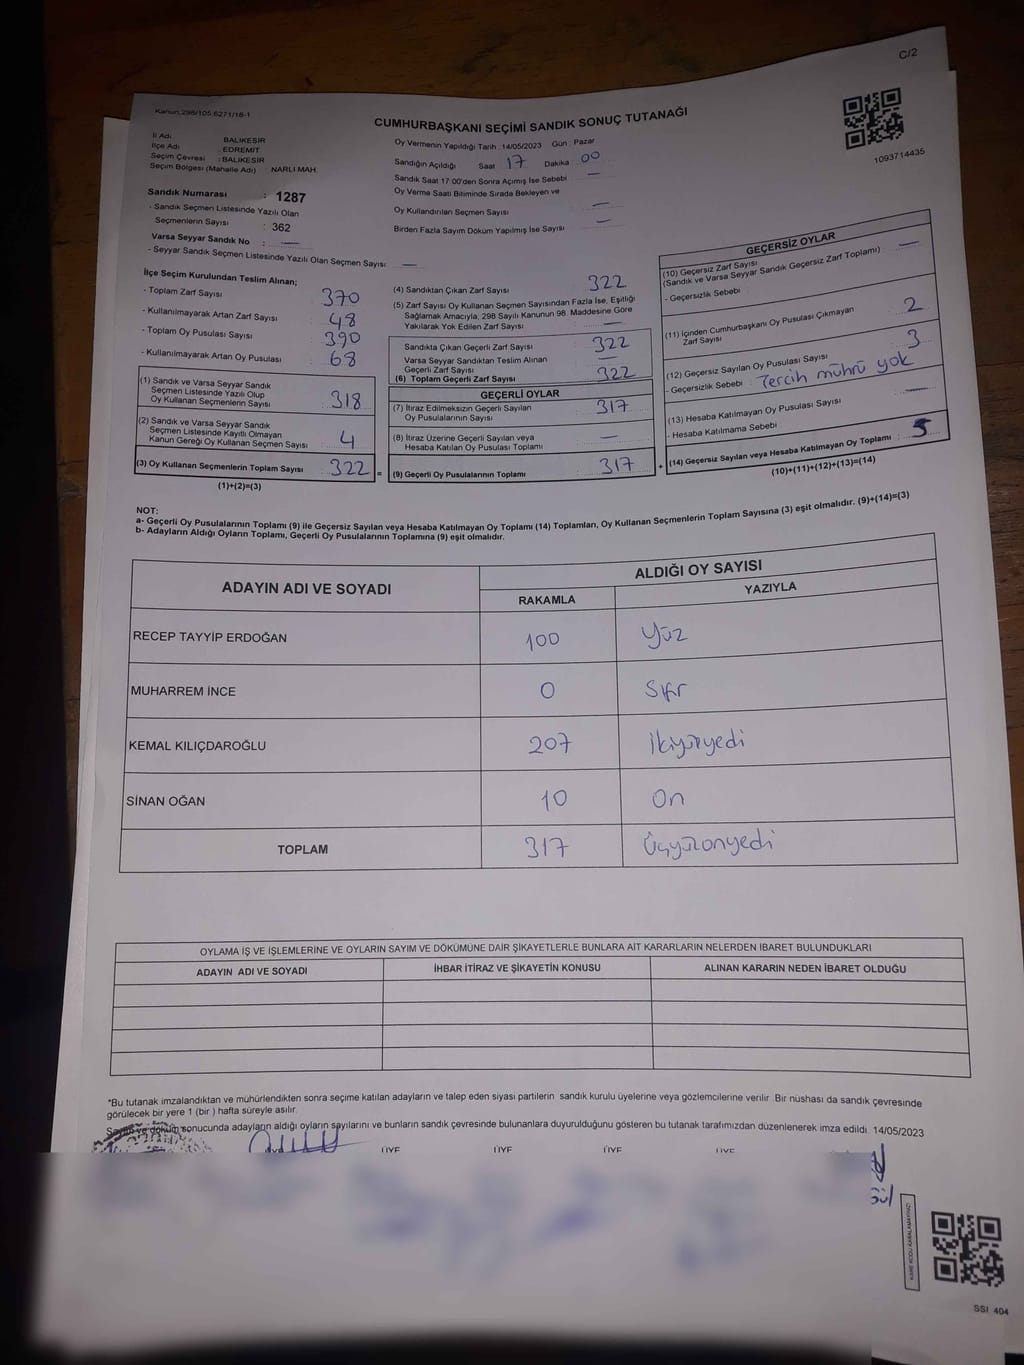 C/2
Kanun:298/105.6271/18-1
CUMHURBAŞKANI SEÇİMİ SANDIK SONUÇ TUTANAĞI
1093714435
İl Adı : BALIKESİR
İlçe Adı : EDREMİT
Seçim Çevresi : BALIKESİR
Seçim Bölgesi (Mahalle Adı) NARLI MAH.
Sandık Numarası : 1287
- Sandık Seçmen Listesinde Yazılı Olan
Seçmenlerin Sayısı : 362
Varsa Seyyar Sandık No : —
- Seyyar Sandık Seçmen Listesinde Yazılı Olan Seçmen Sayısı —
Oy Vermenin Yapıldığı Tarih :14/05/2023 Gün : Pazar
Sandığın Açıldığı Saat 17 Dakika 00
Sandık Saat 17.00'den Sonra Açımış İse Sebebi —
Oy Verme Saati Bitiminde Sırada Bekleyen ve
Oy Kullandırılan Seçmen Sayısı —
Birden Fazla Sayım Döküm Yapılmış İse Sayısı —
İlçe Seçim Kurulundan Teslim Alınan;
- Toplam Zarf Sayısı 370
- Kullanılmayarak Artan Zarf Sayısı 48
- Toplam Oy Pusulası Sayısı 390
- Kullanılmayarak Artan Oy Pusulası 68
(1) Sandık ve Varsa Seyyar Sandık
Seçmen Listesinde Yazılı Olup
Oy Kullanan Seçmenlerin Sayısı 318
(2) Sandık ve Varsa Seyyar Sandık
Seçmen Listesinde Kayıtlı Olmayan
Kanun Gereği Oy Kullanan Seçmen Sayısı 4
(3) Oy Kullanan Seçmenlerin Toplam Sayısı 322 =
(1)+(2)=(3)
(4) Sandıktan Çıkan Zarf Sayısı 322
(5) Zarf Sayısı Oy Kullanan Seçmen Sayısından Fazla İse, Eşitliği
Sağlamak Amacıyla, 298 Sayılı Kanunun 98. Maddesine Göre
Yakılarak Yok Edilen Zarf Sayısı —
Sandıkta Çıkan Geçerli Zarf Sayısı 322
Varsa Seyyar Sandıktan Teslim Alınan
Geçerli Zarf Sayısı —
(6) Toplam Geçerli Zarf Sayısı 322
GEÇERLİ OYLAR
(7) İtiraz Edilmeksizin Geçerli Sayılan
Oy Pusulalarının Sayısı 317
(8) İtiraz Üzerine Geçerli Sayılan veya
Hesaba Katılan Oy Pusulası Toplamı —
(9) Geçerli Oy Pusulalarının Toplamı 317 +
GEÇERSİZ OYLAR
(10) Geçersiz Zarf Sayısı —
(Sandık ve Varsa Seyyar Sandık Geçersiz Zarf Toplamı)
- Geçersizlik Sebebi
(11) İçinden Cumhurbaşkanı Oy Pusulası Çıkmayan
Zarf Sayısı 2
(12) Geçersiz Sayılan Oy Pusulası Sayısı 3
- Geçersizlik Sebebi : Tercih mührü yok
(13) Hesaba Katılmayan Oy Pusulası Sayısı —
- Hesaba Katılmama Sebebi
(14) Geçersiz Sayılan veya Hesaba Katılmayan Oy Toplamı 5
(10)+(11)+(12)+(13)=(14)
NOT:
a- Geçerli Oy Pusulalarının Toplamı (9) ile Geçersiz Sayılan veya Hesaba Katılmayan Oy Toplamı (14) Toplamları, Oy Kullanan Seçmenlerin Toplam Sayısına (3) eşit olmalıdır. (9)+(14)=(3)
b- Adayların Aldığı Oyların Toplamı, Geçerli Oy Pusulalarının Toplamına (9) eşit olmalıdır.
ADAYIN ADI VE SOYADI ALDIĞI OY SAYISI
RAKAMLA YAZIYLA
RECEP TAYYİP ERDOĞAN 100 Yüz
MUHARREM İNCE 0 Sıfır
KEMAL KILIÇDAROĞLU 207 İkiyüzyedi
SİNAN OĞAN 10 On
TOPLAM 317 Üçyüzonyedi
OYLAMA İŞ VE İŞLEMLERİNE VE OYLARIN SAYIM VE DÖKÜMÜNE DAİR ŞİKAYETLERLE BUNLARA AİT KARARLARIN NELERDEN İBARET BULUNDUKLARI
ADAYIN ADI VE SOYADI İHBAR İTİRAZ VE ŞİKAYETİN KONUSU ALINAN KARARIN NEDEN İBARET OLDUĞU
*Bu tutanak imzalandıktan ve mühürlendikten sonra seçime katılan adayların ve talep eden siyasi partilerin sandık kurulu üyelerine veya gözlemcilerine verilir .Bir nüshası da sandık çevresinde
görülecek bir yere 1 (bir ) hafta süreyle asılır.
Sayım ve döküm sonucunda adayların aldığı oyların sayılarını ve bunların sandık çevresinde bulunanlara duyurulduğunu gösteren bu tutanak tarafımızdan düzenlenerek imza edildi. 14/05/2023
ÜYE ÜYE ÜYE ÜYE ÜYE
KARE KODU KARALAMAYINIZ!
SSI 404